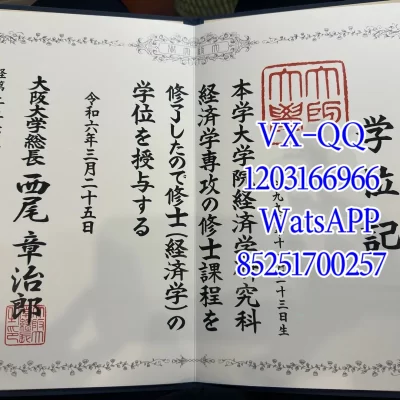 学位記
VX-QQ
1203166966
WatsAPP
85251700257
十三日生
本学大学院経済学研究科
経済学専攻の修士課程を
修了したので修士（経済学）の
学位を授与する
令和六年三月二十五日
大阪大学総長 西尾章治郎